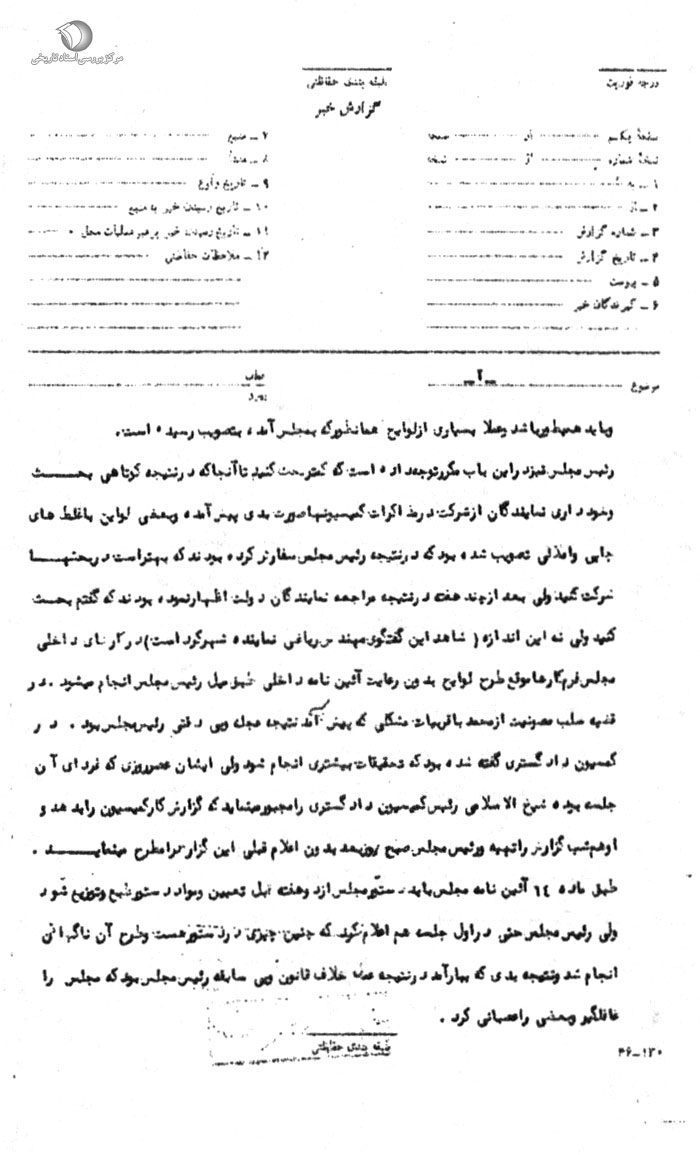 مرکز بررسی اسناد تاریخی
درجه فوریت
طبقه بندی حفاظتی
گزارش خبر
صفحهٔ یکم از صفحه
نسخهٔ شماره از نسخه
۱ ـ به
۲ ـ از
۳ ـ شماره گزارش
۴ ـ تاریخ گزارش
۵ ـ پیوست
۶ ـ گیرندگان خبر
۷ ـ منبع
۸ ـ منشأ
۹ ـ تاریخ وقوع
۱۰ ـ تاریخ رسیدن خبر به منبع
۱۱ ـ تاریخ رسیدن خبر برهبر عملیات محل
۱۲ ـ ملاحظات حفاظتی
موضوع
ـ۲ـ
عطف
پیرو
وباید همینطورباشد وعملا بسیاری ازلوایح همانطورکه بمجلس آمده بتصویب رسیده است.
رئیس مجلس نیزد راین باب مکررتوجه داده است که کمتربحث کنید تاآنجاکه درنتیجه کوتاهی بحث
وخود داری نمایندگان ازشرکت درمذاکرات کمیسیونهاصورت بدی پیش آمده وبعضی لواین باغلط های
چاپی واملائی تصویب شده بود که درنتیجه رئیس مجلس سفارش کرده بودند که بهتراست دربحثها
شرکت کنید ولی بعد ازچند هفته درنتیجه مراجعه نمایندگان دولت اظهارنموده بودند که گفتم بحث
کنید ولی نه این اندازه ( شاهد این گفتگوی مهندس ریاضی نماینده شهرکرد است) درکارهای داخلی
مجلس فرم کارهاموقع طرح لوایح بدون رعایت آئین نامه داخلی طبق میل رئیس مجلس انجام میشود . در
قضیه سلب مصونیت ازمحمد باقربیات مشکلی که پیش آمد نتیجه عجله وبی دقتی رئیس مجلس بود . در
کمسیون دادگستری گفته شده بود که تحقیقات بیشتری انجام شود ولی ایشان عصرروزی که فردای آن
جلسه بوده شیخ الاسلامی رئیس کمیسیون دادگستری رامجبورمینماید که گزارش کارکمیسیون رابدهد و
اوهم شب گزارش راتهیه ورئیس مجلس صبح روزبعد بدون اعلام قبلی این گزارش رامطرح مینماید .
طبق ماده ٦٤ آئین نامه مجلس باید دستورمجلس ازدوهفته قبل تعیین ومواد دستورطبع وتوزیع شود
ولی رئیس مجلس حتی دراول جلسه هم اعلام نکرد که چنین چیزی دردستورهست وطرح آن ناگهانی
انجام شد ونتیجه بدی که ببارآمد درنتیجه عمل خلاف قانون وبی سابقه رئیس مجلس بود که مجلس را
غافلگیر وبعضی راعصبانی کرد .
طبقه بندی حفاظتی
۴۶ـ۱۳۰